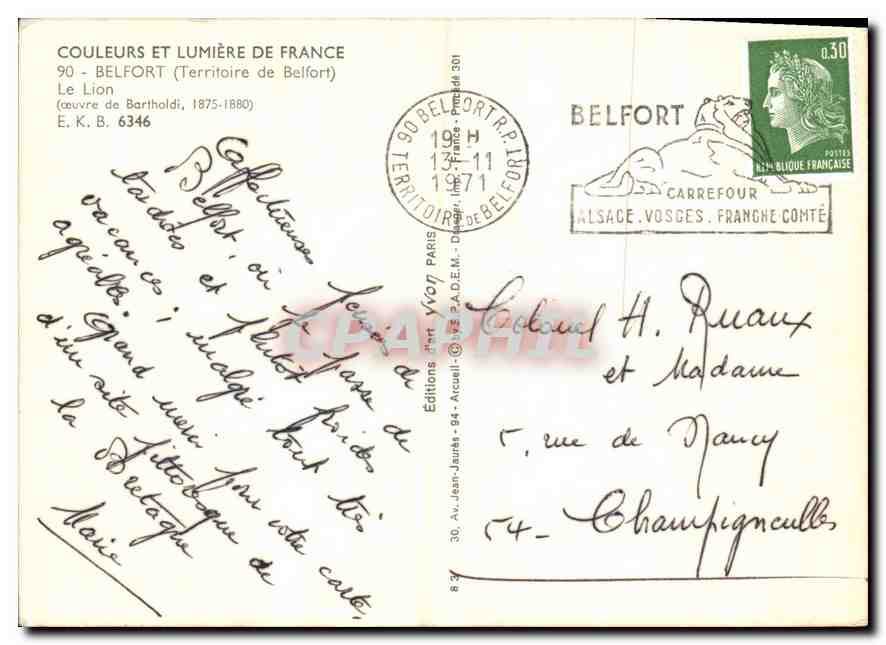 COULEURS ET LUMIÈRE DE FRANCE
90 - BELFORT (Territoire de Belfort)
Le Lion
(œuvre de Bartholdi, 1875-1880)
E. K. B. 6346
Affectueuses pensées de
Belfort où je passe de
tardives et plutôt froides
vacances; malgré tout très
agréables. Grand merci pour votre carte
d'un site pittoresque de
la Bretagne
Marie
Editions d'art yvon PARIS
30, Av. Jean-Jaurès - 94 - Arcueil - © by S.P.A.D.E.M. - Draeger, Imp. - France - Procédé 301
8 3
90 BELFORT R.P.
19 H
13-11
1971
TERRITOIRE DE BELFORT
BELFORT
CARREFOUR
ALSACE. VOSGES. FRANCHE-COMTÉ
0,30
POSTES
RÉPUBLIQUE FRANÇAISE
Colonel H. Ruaux
et Madame
5, rue de Nancy
54 - Champigneulles
CPAPHIL